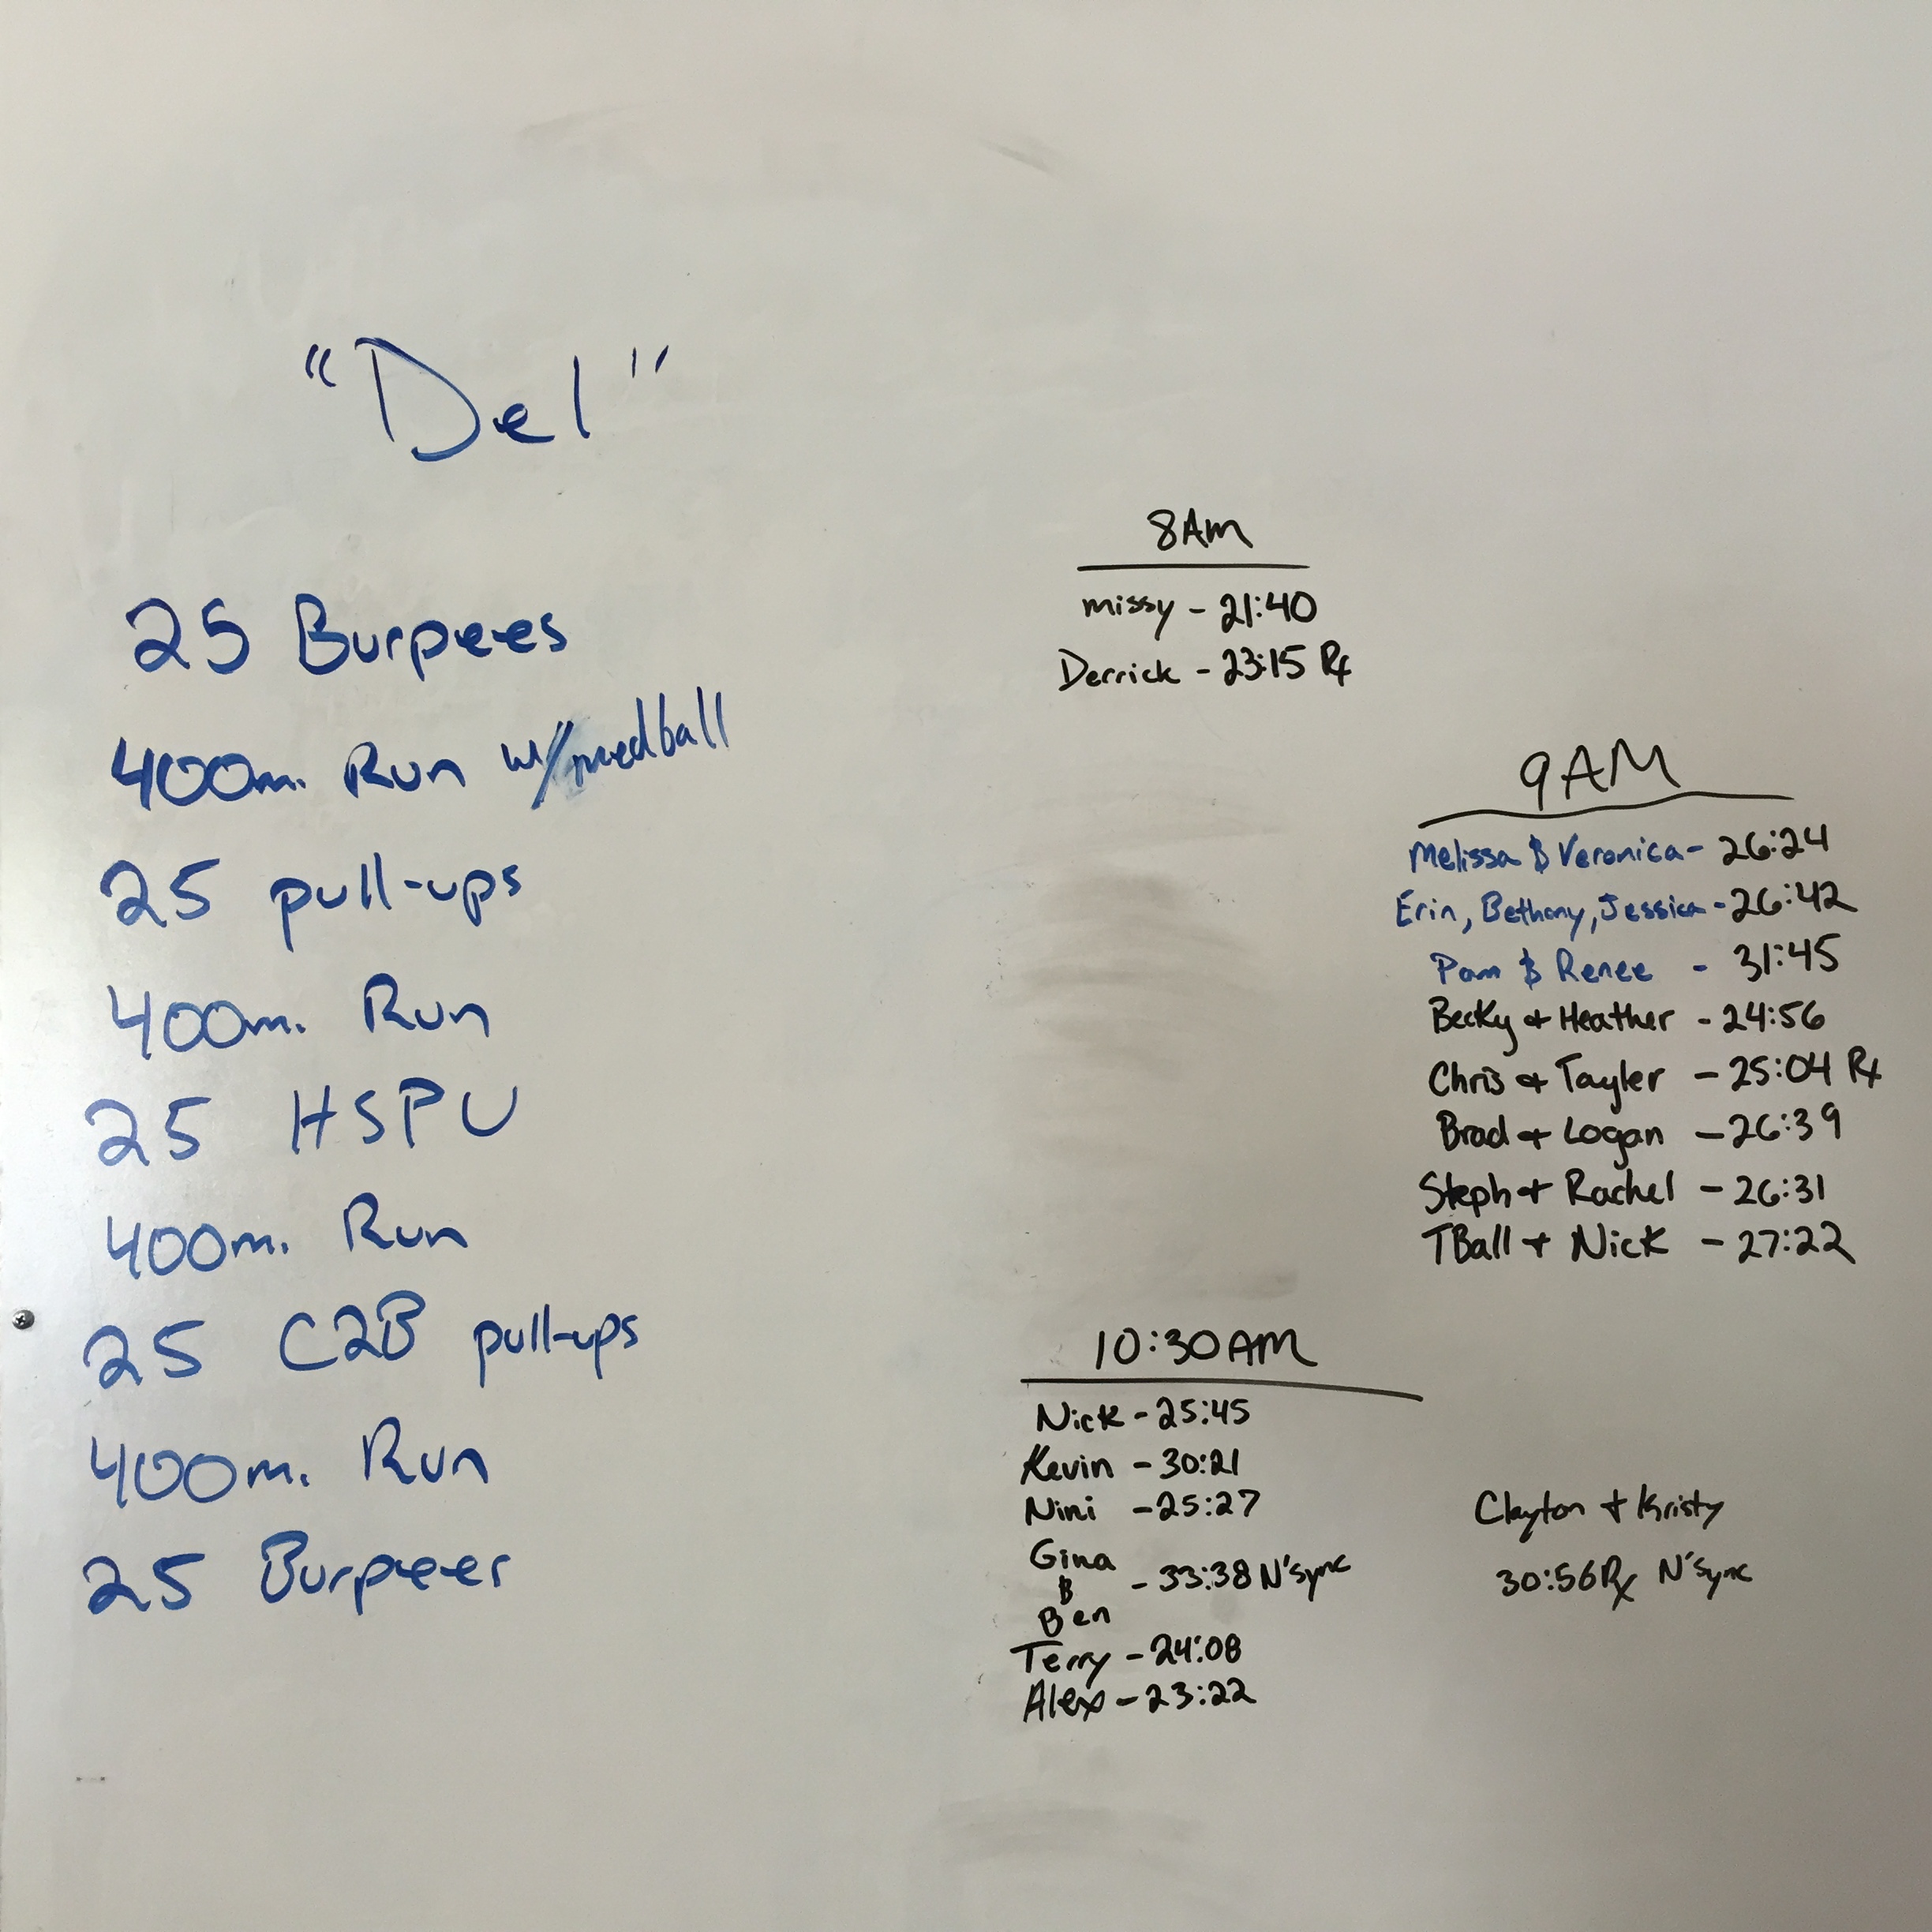 "Del"
25 Burpees
400m. Run w/medball
25 pull-ups
400m. Run
25 HSPU
400m. Run
25 C2B pull-ups
400m. Run
25 Burpees
8AM
missy - 21:40
Derrick - 23:15 Rx
9AM
Melissa & Veronica - 26:24
Erin, Bethany, Jessica - 26:42
Pam & Renee - 31:45
Becky + Heather - 24:56
Chris + Tayler - 25:04 Rx
Brad + Logan - 26:39
Steph + Rachel - 26:31
TBall + Nick - 27:22
10:30AM
Nick - 25:45
Kevin - 30:21
Nini - 25:27
Gina
& - 33:38 N'sync
Ben
Terry - 24:08
Alex - 23:22
Clayton + Kristy
30:56 Rx N'sync